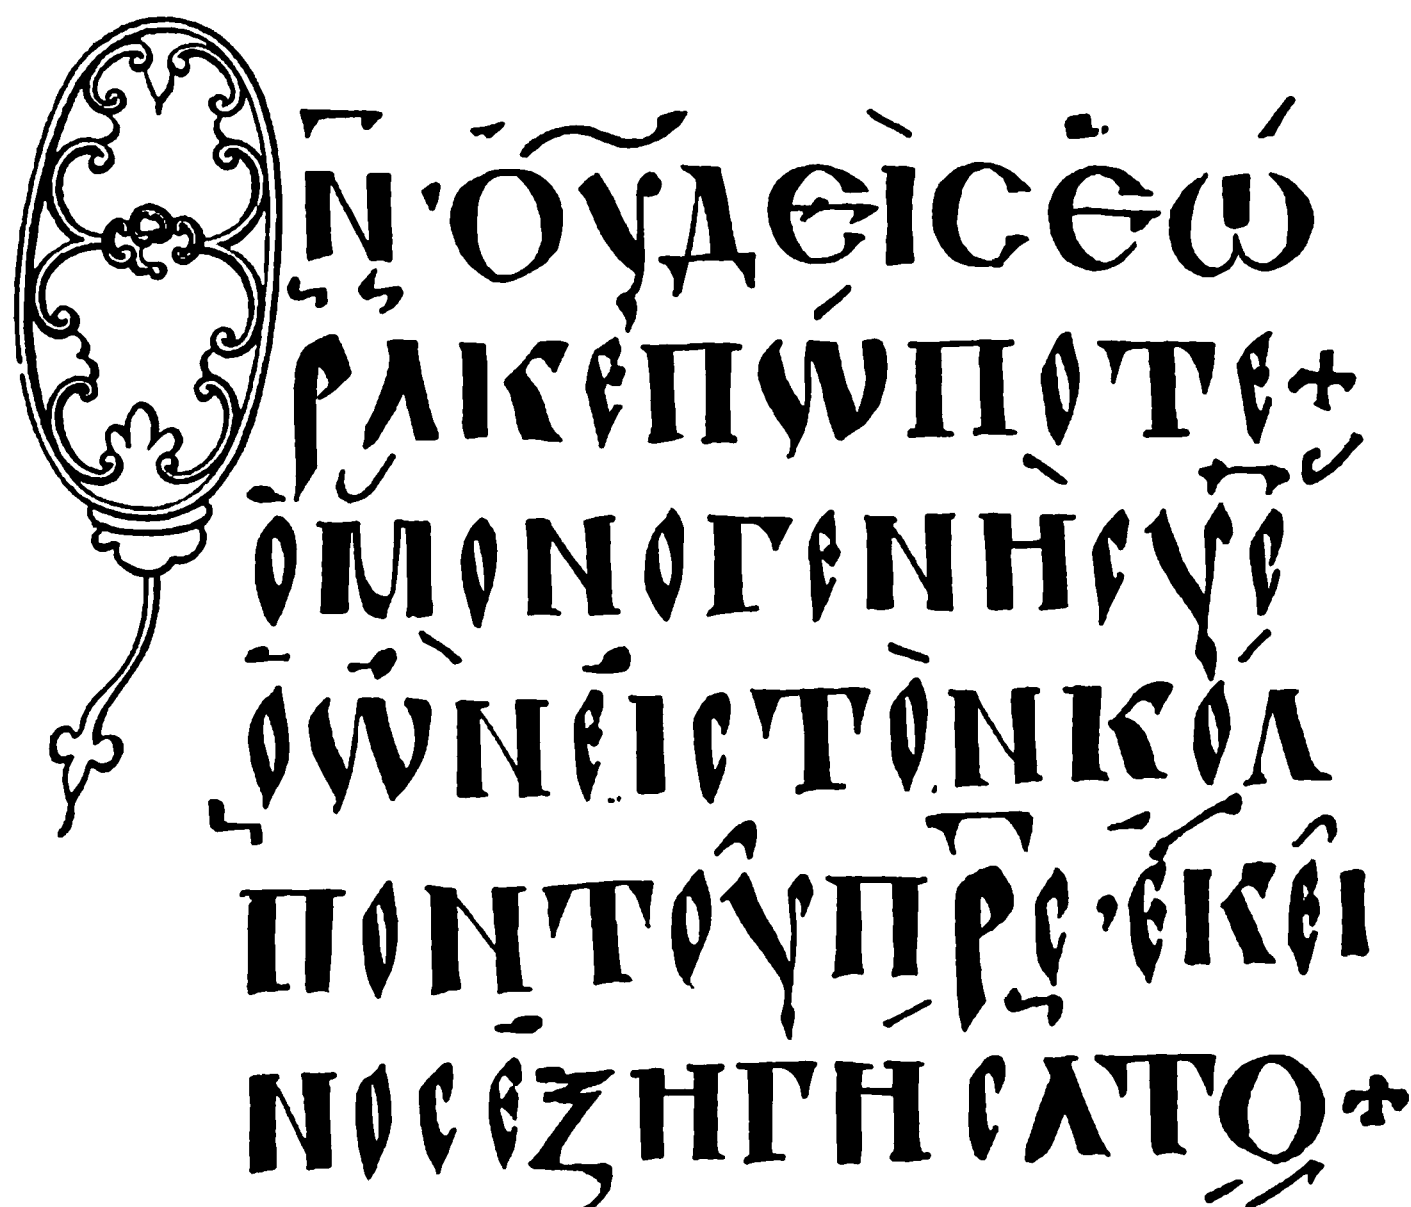 Θ̅Ν̅·ΟΥΔΕΙϹΕΩ
ΡΑΚΕΠΩΠΟΤΕ+
ΟΜΟΝΟΓΕΝΗϹΥ̅Ϲ̅
ΟΩΝΕΙϹΤΟΝΚΟΛ
ΠΟΝΤΟΥΠ̅Ρ̅Ϲ̅·ΕΚΕΙ
ΝΟϹΕΞΗΓΗϹΑΤΟ+